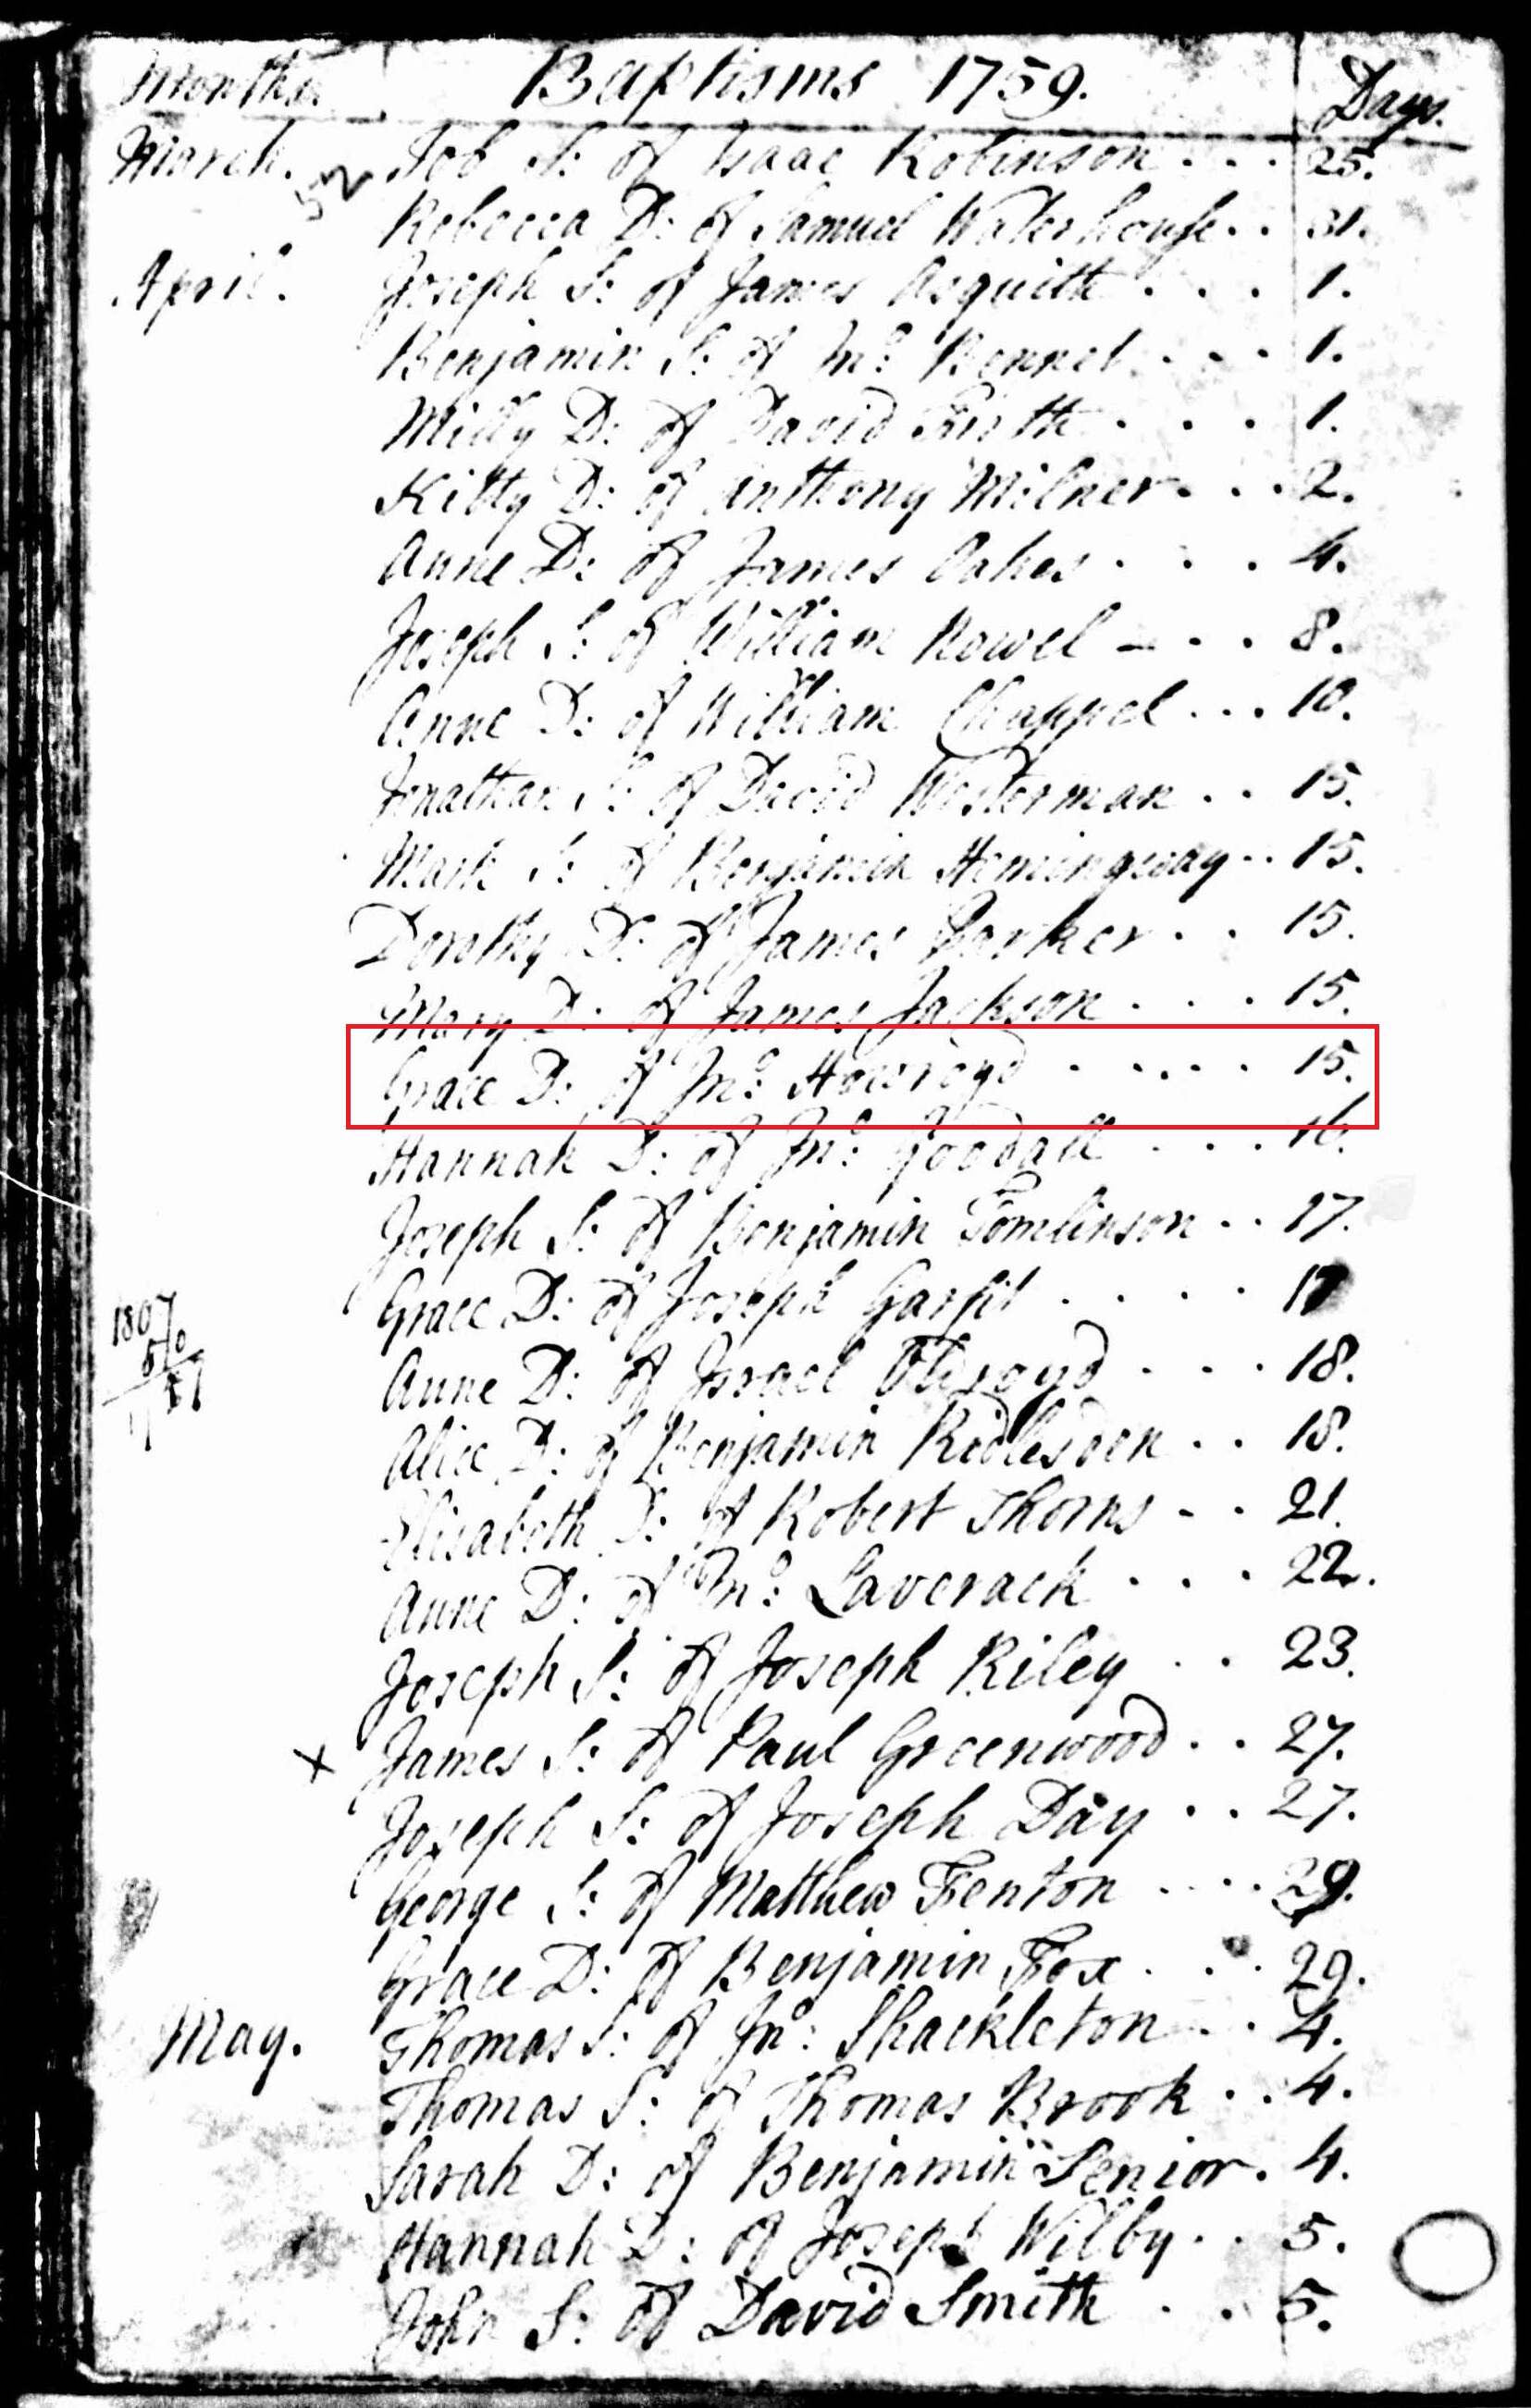 Months Baptisms 1759. Days.
March. Job S: of Isaac Robinson . . . 25.
Rebecca D: of Samuel Waterhouse . . 31.
April. Joseph S: of James Asquith . . . 1.
Benjamin S: of Jno: Bennet . . . 1.
Milly D: of David Firth . . . 1.
Kitty D: of Anthony Milner . . . 2.
Anne D: of James Oakes . . . 4.
Joseph S: of William Rowel - . . 8.
Anne D: of William Chappel . . . 10.
Jonathan S: of David Westerman . . 15.
Mark S: of Benjamin Hemingway . . 15.
Dorothy D: of James Parker . . 15.
Mary D: of James Jackson . . . 15.
Grace D: of Jno: Howroyd . . . . . 15.
Hannah D: of Jno: Goodall . . . 16.
Joseph S: of Benjamin Tomlinson . . 17.
Grace D: of Joseph Garfit . . . . 17
1807
Anne D: of Israel Oldroyd . . . 18.
Alice D: of Benjamin Ridlesden . . 18.
Elisabeth D: of Robert Thorns - . 21.
Anne D: of Jno: Laverack . . . 22.
Joseph S: of Joseph Riley . . 23.
x James S: of Paul Greenwood . . 27.
Joseph S: of Joseph Day . . 27.
George S: of Matthew Fenton . . . . 29.
Grace D: of Benjamin Fox . . . 29.
May. Thomas S: of Jno: Shackleton . . 4.
Thomas S: of Thomas Brook . . 4.
Sarah D: of Benjamin Senior . 4.
Hannah D: of Joseph Wilby . . 5.
John S: of David Smith . . 5.